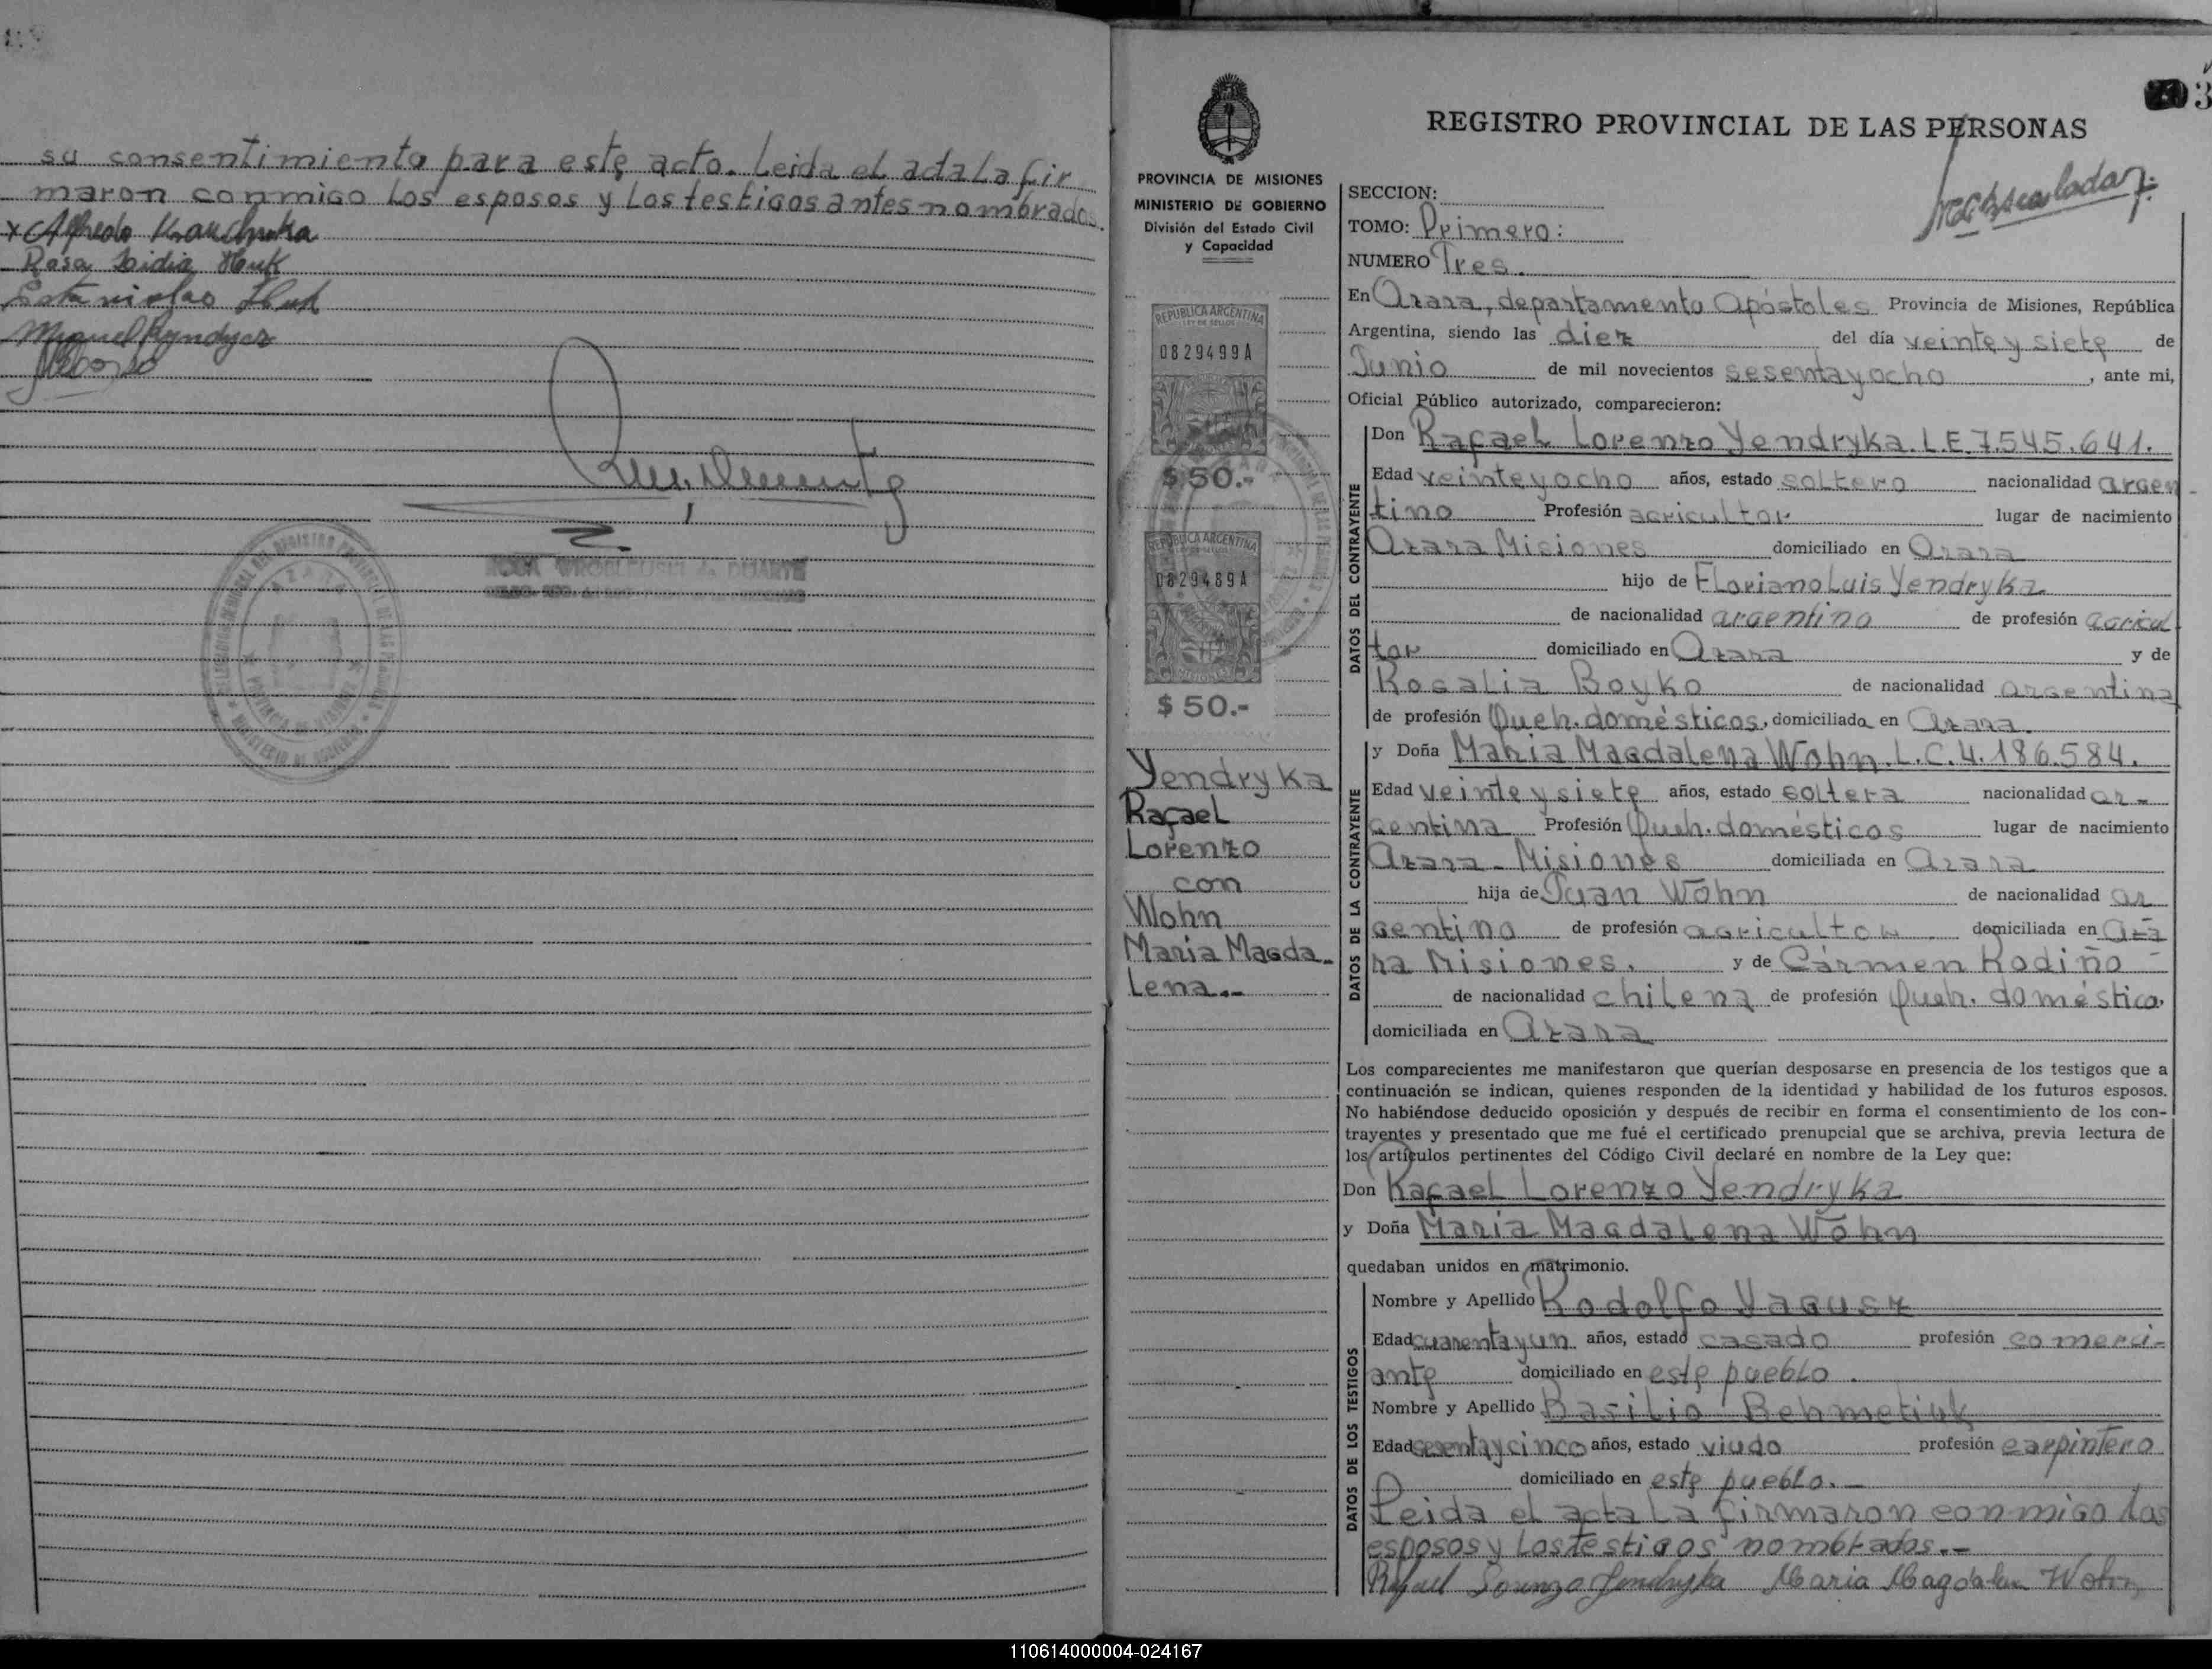 su consentimiento para este acto. Leida el acta La fir
maron conmigo Los esposos y Los testigos antes nombrados.
x Alfredo Krauchuka
Rosa Lidia Huk
Estanislao Huk
Miguel Kyndycz
REGISTRO PROVINCIAL DE LAS PERSONAS
3
PROVINCIA DE MISIONES
MINISTERIO DE GOBIERNO
División del Estado Civil
y Capacidad
REPUBLICA ARGENTINA
LEY DE SELLOS
0829499A
$ 50.-
REPUBLICA ARGENTINA
0829489A
MISIONES
$ 50.-
Yendryka
Rafael
Lorenzo
con
Wohn
Maria Magda-
Lena.-
SECCION:
TOMO: Primero:
NUMERO Tres.
En Azara, departamento Apóstoles Provincia de Misiones, República
Argentina, siendo las diez del día veinte y siete de
Junio de mil novecientos sesenta y ocho, ante mi,
Oficial Público autorizado, comparecieron:
DATOS DEL CONTRAYENTE
Don Rafael Lorenzo Yendryka. L.E. 7.545.641.
Edad veinte y ocho años, estado soltero nacionalidad argen-
tino Profesión agricultor lugar de nacimiento
Azara Misiones domiciliado en Azara
hijo de Floriano Luis Yendryka
de nacionalidad argentino de profesión agricul
tor domiciliado en Azara y de
Rosalia Boyko de nacionalidad argentina
de profesión Queh. domésticos, domiciliada en Azara.
DATOS DE LA CONTRAYENTE
y Doña Maria Magdalena Wohn. L.C. 4.186.584.
Edad veinte y siete años, estado soltera nacionalidad ar-
gentina Profesión Queh. domésticos lugar de nacimiento
Azara - Misiones domiciliada en Azara
hija de Juan Wohn de nacionalidad ar
gentino de profesión agricultor domiciliada en Aza
ra Misiones. y de Cármen Rodiño
de nacionalidad chilena de profesión Queh. doméstica,
domiciliada en Azara
Los comparecientes me manifestaron que querían desposarse en presencia de los testigos que a
continuación se indican, quienes responden de la identidad y habilidad de los futuros esposos.
No habiéndose deducido oposición y después de recibir en forma el consentimiento de los con-
trayentes y presentado que me fué el certificado prenupcial que se archiva, previa lectura de
los artículos pertinentes del Código Civil declaré en nombre de la Ley que:
Don Rafael Lorenzo Yendryka
y Doña María Magdalena Wohn
quedaban unidos en matrimonio.
DATOS DE LOS TESTIGOS
Nombre y Apellido Rodolfo Yagusz
Edad cuarenta y un años, estado casado profesión comerci-
ante domiciliado en este pueblo.
Nombre y Apellido Basilio Behmetiuk
Edad sesenta y cinco años, estado viudo profesión carpintero
domiciliado en este pueblo.-
Leida el acta La firmaron conmigo los
esposos y Los testigos nombrados.-
Rafael Lorenzo Jendryka Maria Magdalena Wohn
110614000004-024167